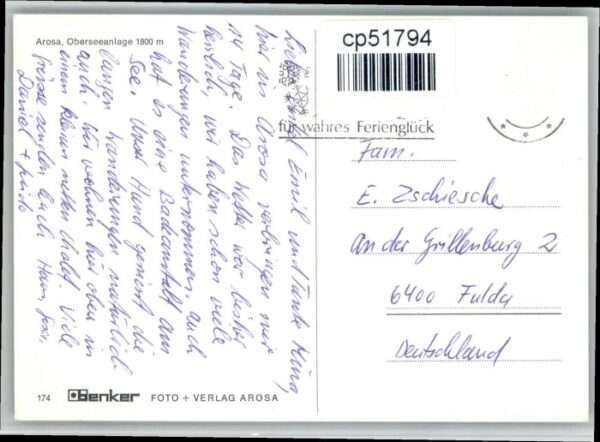 Arosa, Oberseeanlage 1800 m
Lieber Onkel Emil und Tante
hier in Arosa verbringen wir
14 Tage. Das Wetter war bisher
herrlich, wir haben schon viele
Wanderungen unternommen, auch
hat es eine Badeanstalt am
See. Unser Hund genießt die
langen Wanderungen natürlich
auch. Wir wohnen hier oben in
einem kleinen netten Chalet. Viele
Grüsse senden Euch Hans,
Daniel +
cp51794
für wahres Ferienglück
Fam.
E. Zschiesche
An der Grillenburg 2
6400 Fulda
Deutschland
174 Benker FOTO + VERLAG AROSA